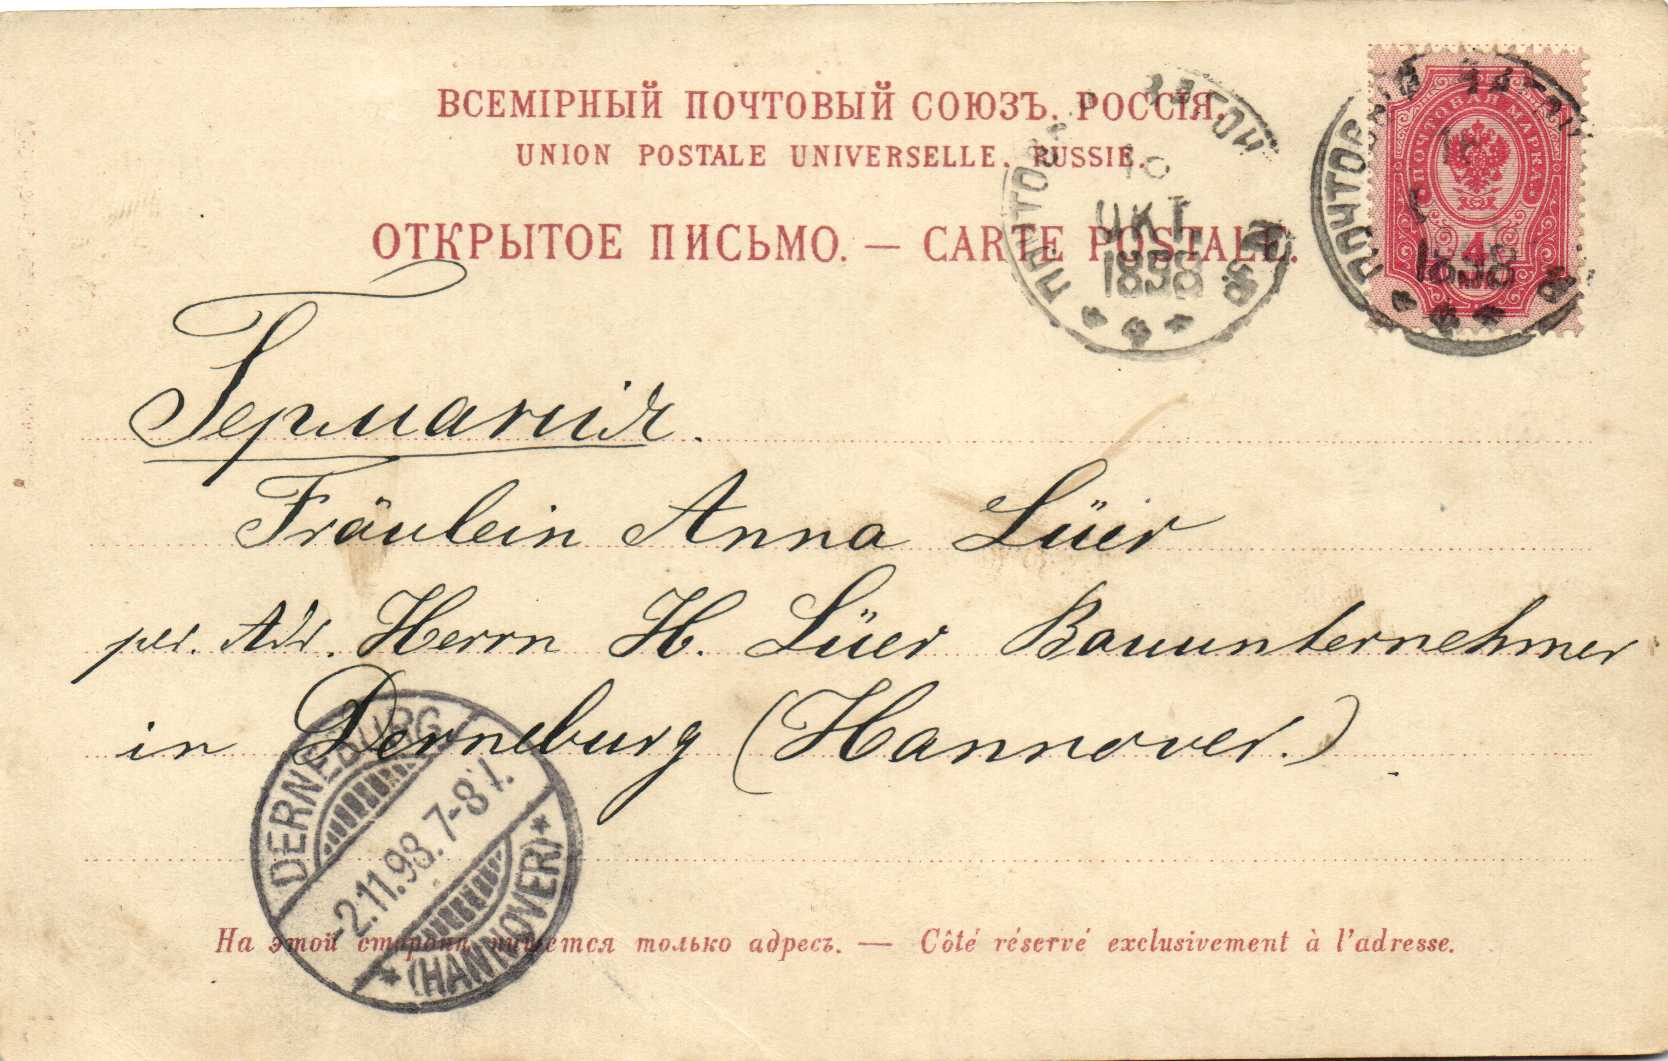 ВСЕМІРНЫЙ ПОЧТОВЫЙ СОЮЗЪ. РОССІЯ.
UNION POSTALE UNIVERSELLE. RUSSIE.
ОТКРЫТОЕ ПИСЬМО. — CARTE POSTALE.
ПОЧТОВЫЙ ВАГОНЪ
ОКТ
1898
ПОЧТОВАЯ МАРКА
4
ПОЧТОВЫЙ ВАГОНЪ
1898
Германія.
Fräulein Anna Lüer
per. Adr. Herrn H. Lüer Bauunternehmer
in Derneburg (Hannover.)
DERNEBURG
-2.11.98.7-8V.
* (HANNOVER) *
На этой сторонѣ пишется только адресъ. — Côté réservé exclusivement à l'adresse.